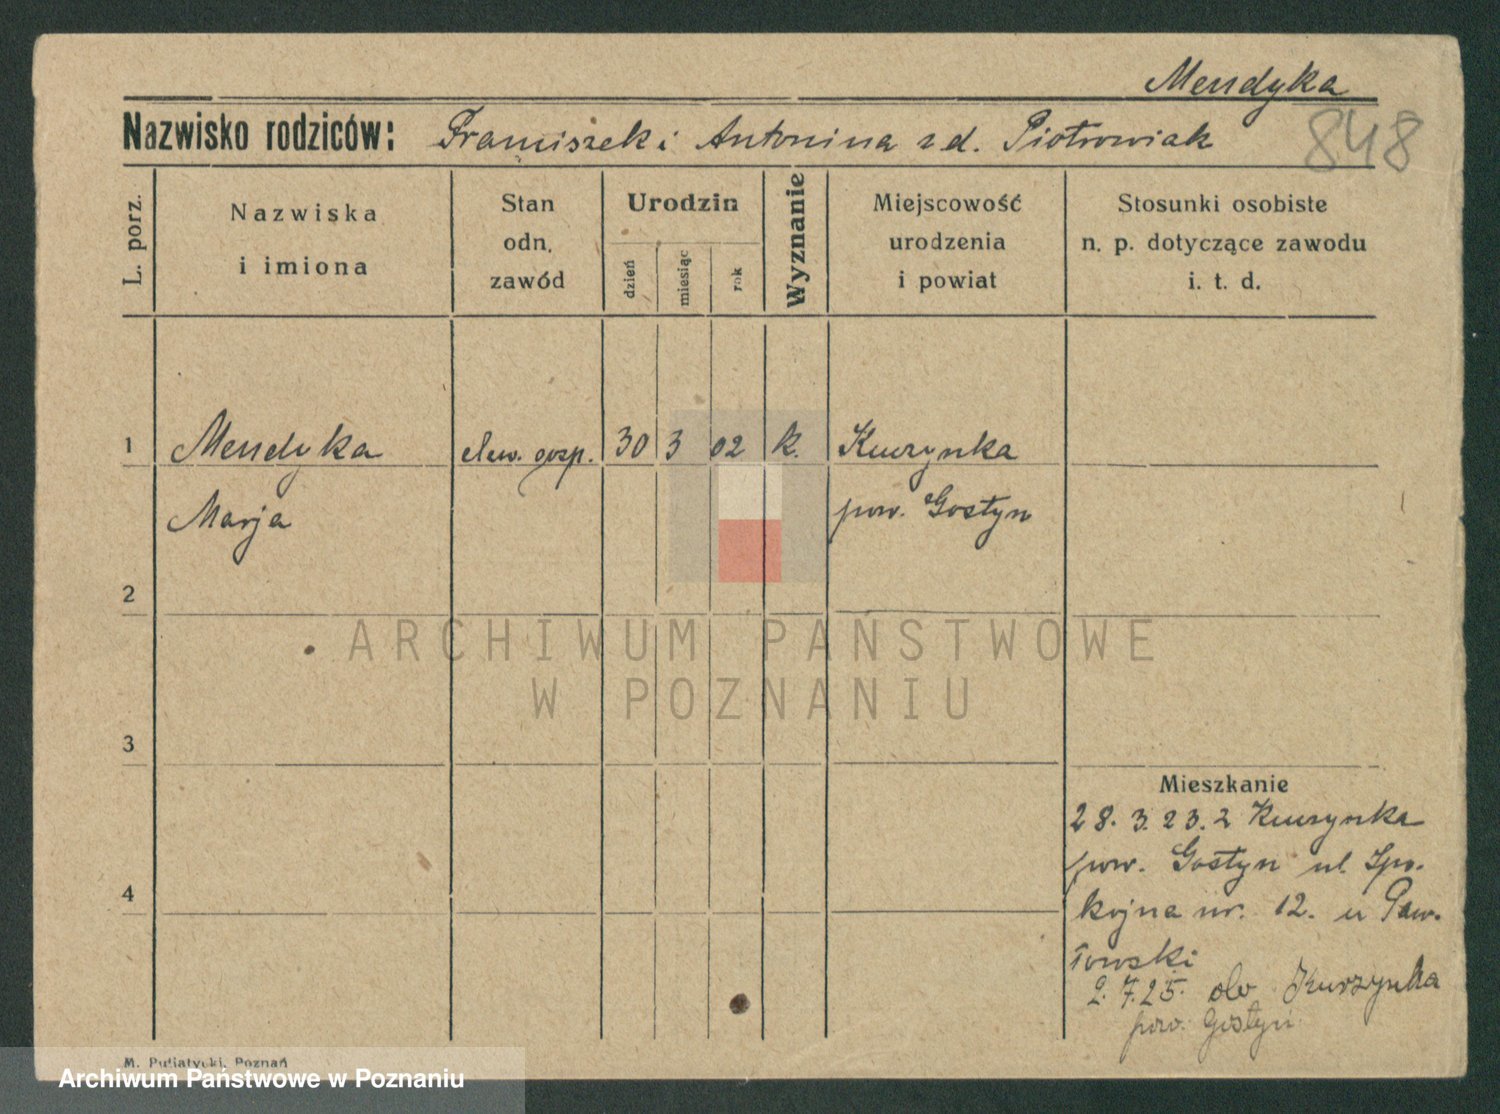 Mendyka
Nazwisko rodziców: Franciszek i Antonina z d. Piotrowiak
848
L. porz.
Nazwiska
i imiona
Stan
odn.
zawód
Urodzin
dzień
miesiąc
rok
Wyznanie
Miejscowość
urodzenia
i powiat
Stosunki osobiste
n. p. dotyczące zawodu
i. t. d.
1 Mendyka gosp. 30 3 02 k. Kurzynka
Marja pow. Gostyn
2
ARCHIWUM PAŃSTWOWE
W POZNANIU
3
Mieszkanie
28. 3. 23. z Kurzynka
pow. Gostyn ul. Spo-
4
kojna nr. 12. u Paw-
łowski
2. 7. 25. do Kurzynka
pow. Gostyń
M. Putiatycki, Poznań
Archiwum Państwowe w Poznaniu